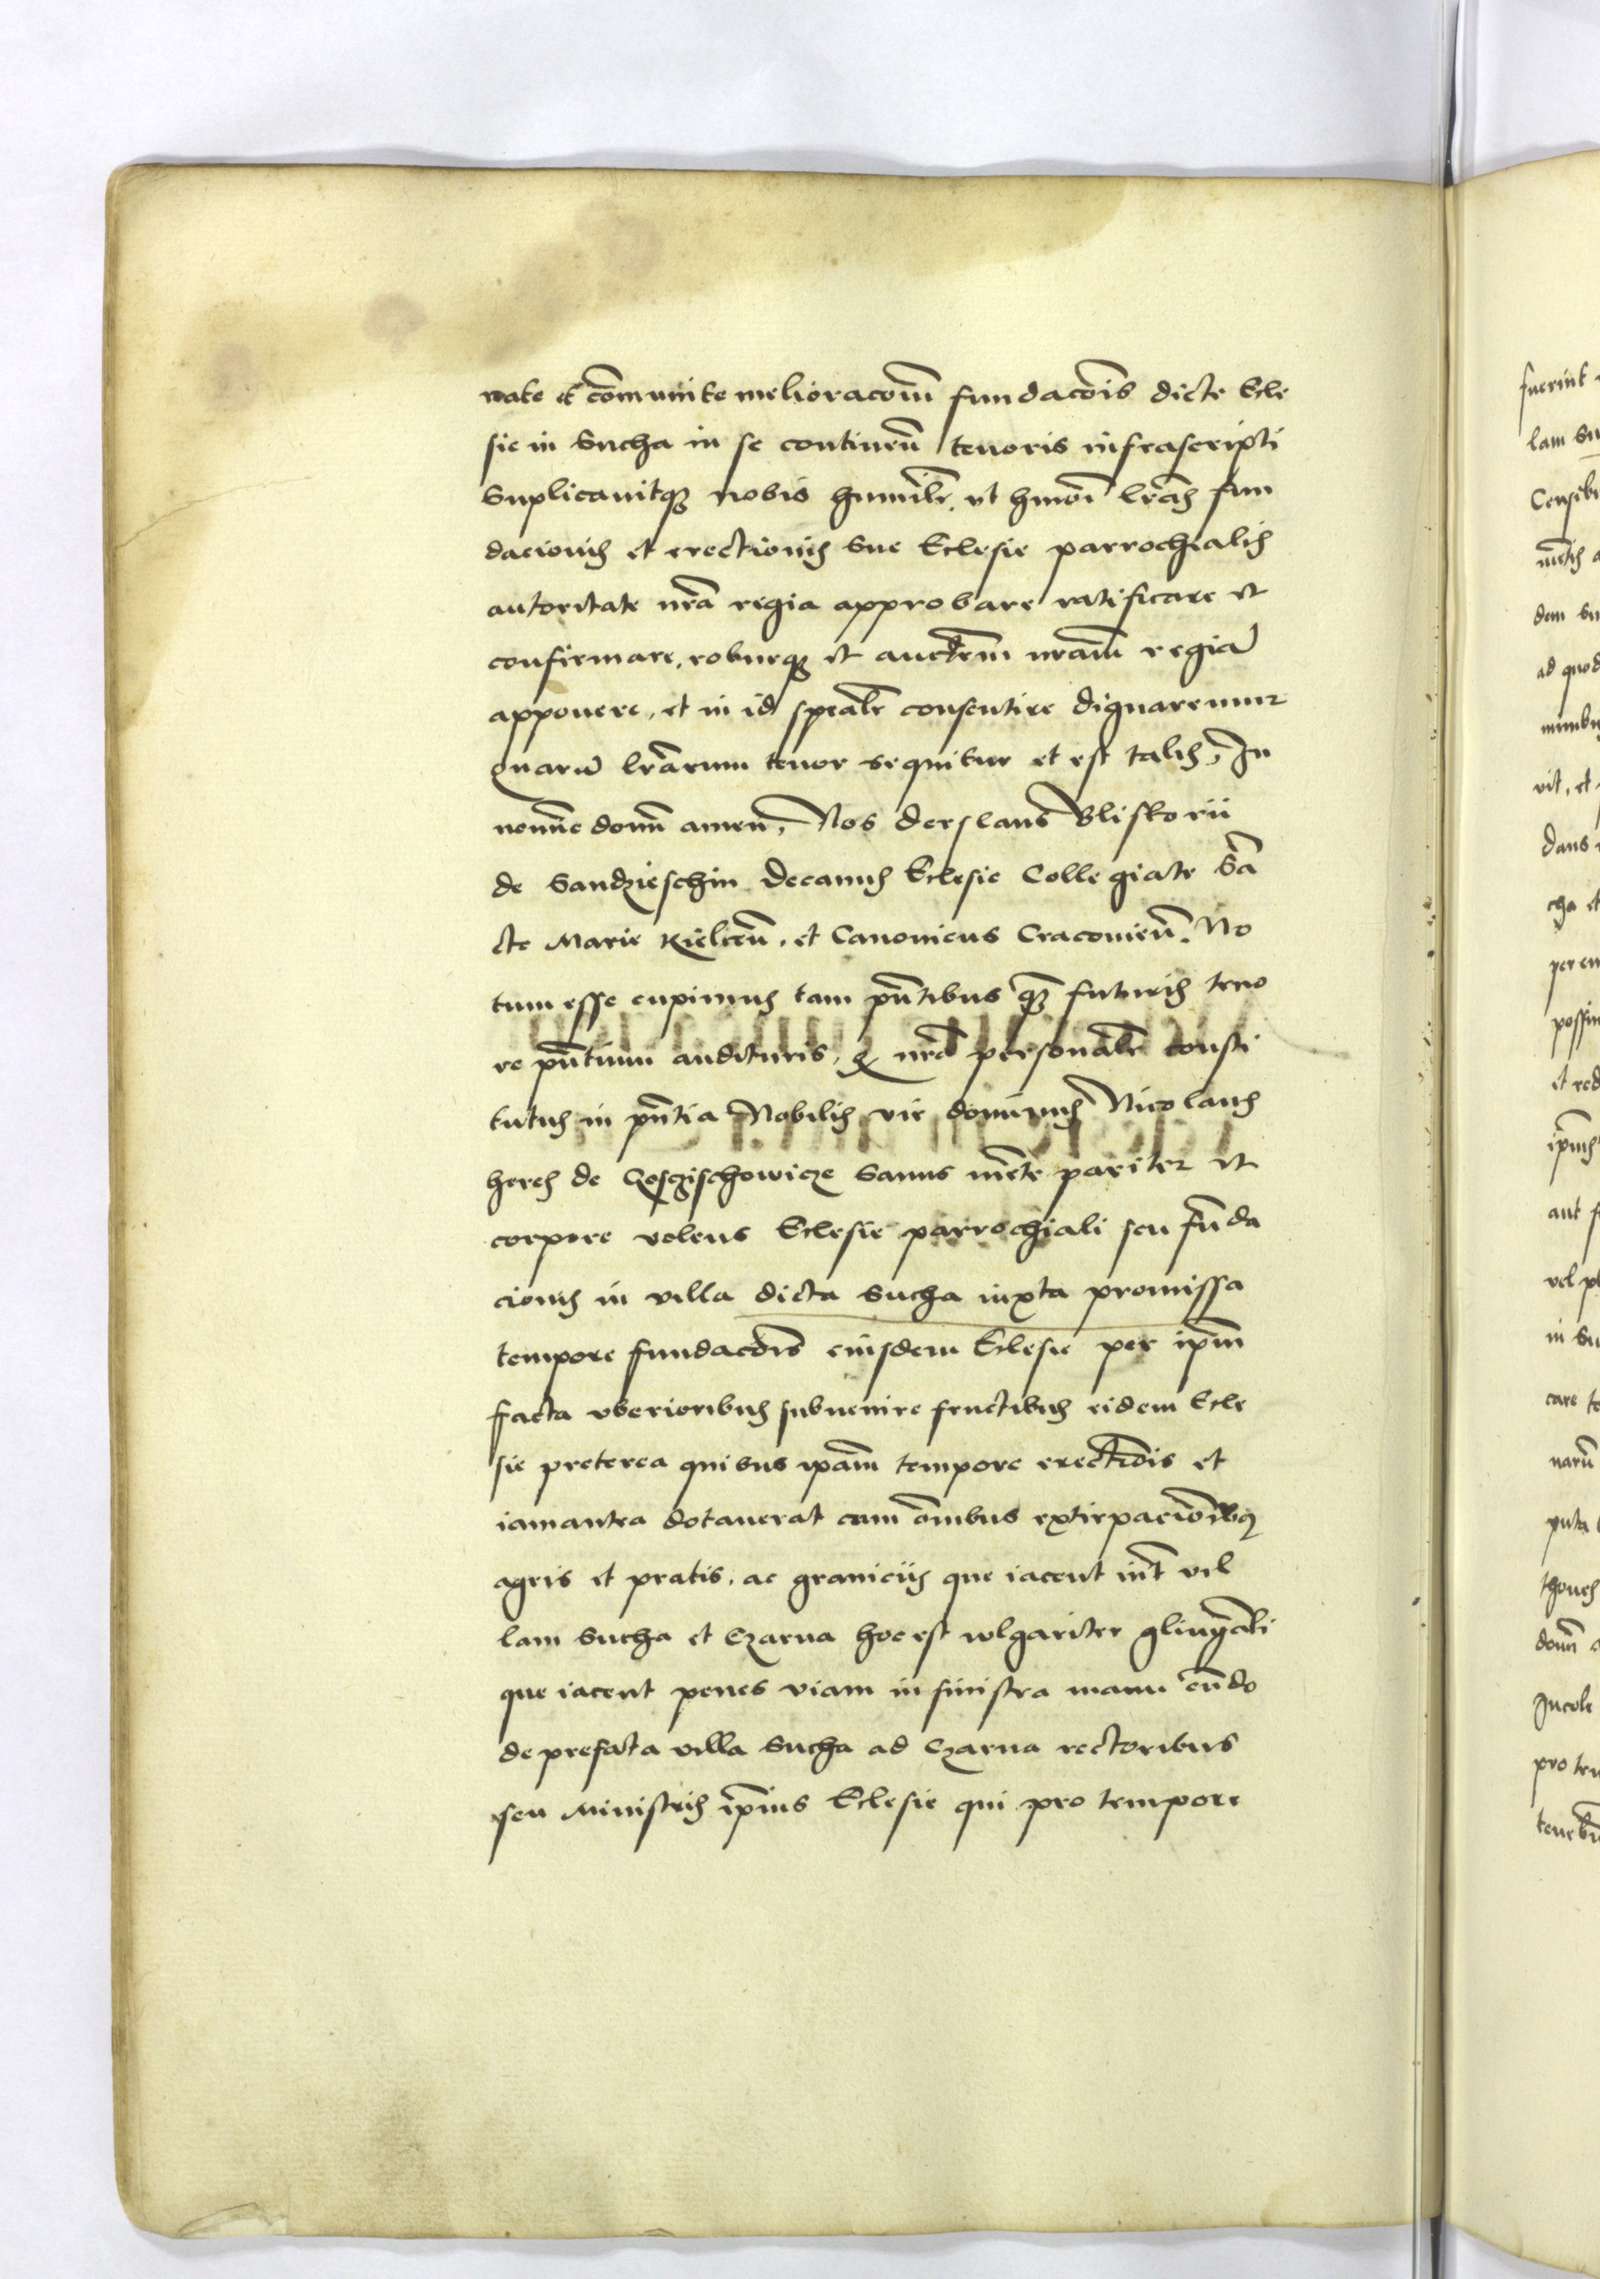 nate et cōmunite melioracōnū fundacōis dicte Ecle
sie in Sucha in se continēn tenoris infrascripti
Suplicauitqꝫ nobis humilr̄. vt hmōi lrās fun
dacionis et erectionis Sue Eclesie parrochialis
autoritate nrā regia approbare ratificare et
confirmare, roburqꝫ et auctem̄ nrām regiā
apponere, et in id speālr consentire dignaremur
quarū lrārum tenor sequitur et est talis, In
nomīe domī amen, Nos derslaus Bliskorii
de Sandzieschin Decanus Eclesie Collegiate Sā
cte Marie Kielceñ, et Canonicus Cracouieñ. No
tum esse cupimus tam pñtibus qꝫ futuris teno
re pñtium audituris, Q nrā personālr consti
tutus in pñtia Nobilis vir dominus Nicolaus
heres de Czesczischowicze Sanus mēte pariter et
corpore volens Eclesie parrochiali seu fūda
cionis in villa dicta Sucha iuxta promissa
tempore fundacōis eiusdem Eclesie per ipm̄
facta vberioribus subuenire fructibus eidem Ecle
sie preterea quibus ipam̄ tempore erectiōis et
iamantea dotauerat cum oīmbus extirpacionibꝫ
agris et pratis, ac graniciis que iacent int̄ vil
lam Sucha et Czarna hoc est wlgariter
que iacent penes viam in sinistra manu eūdo
de prefata villa Sucha ad Czarna rectoribus
seu Ministris ipīus Eclesie qui pro tempore
fuerint
lam Su
Censibu
dem su
ad quod
vit, et
cha et
per eu
et red
aut f
vel pl
in Su
care te
puta
Incole
pro tem